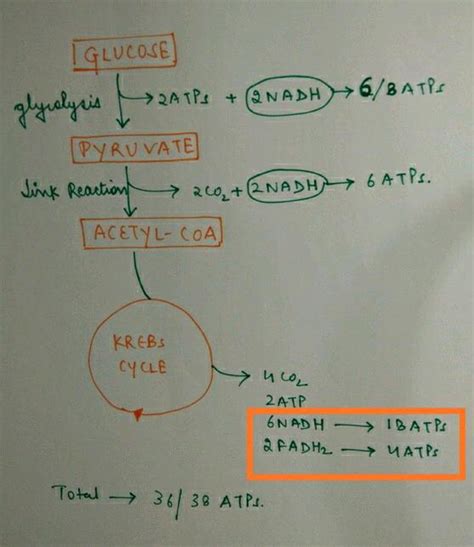 GLUCOSE
glycolysis → 2ATPs + 2NADH → 6/8 ATPs
PYRUVATE
Link Reaction → 2CO₂ + 2NADH → 6 ATPs.
ACETYL-COA
KREBS
CYCLE
4CO₂
2ATP
6NADH → 18ATPs
2FADH₂ → 4ATPs
Total → 36/38 ATPs.